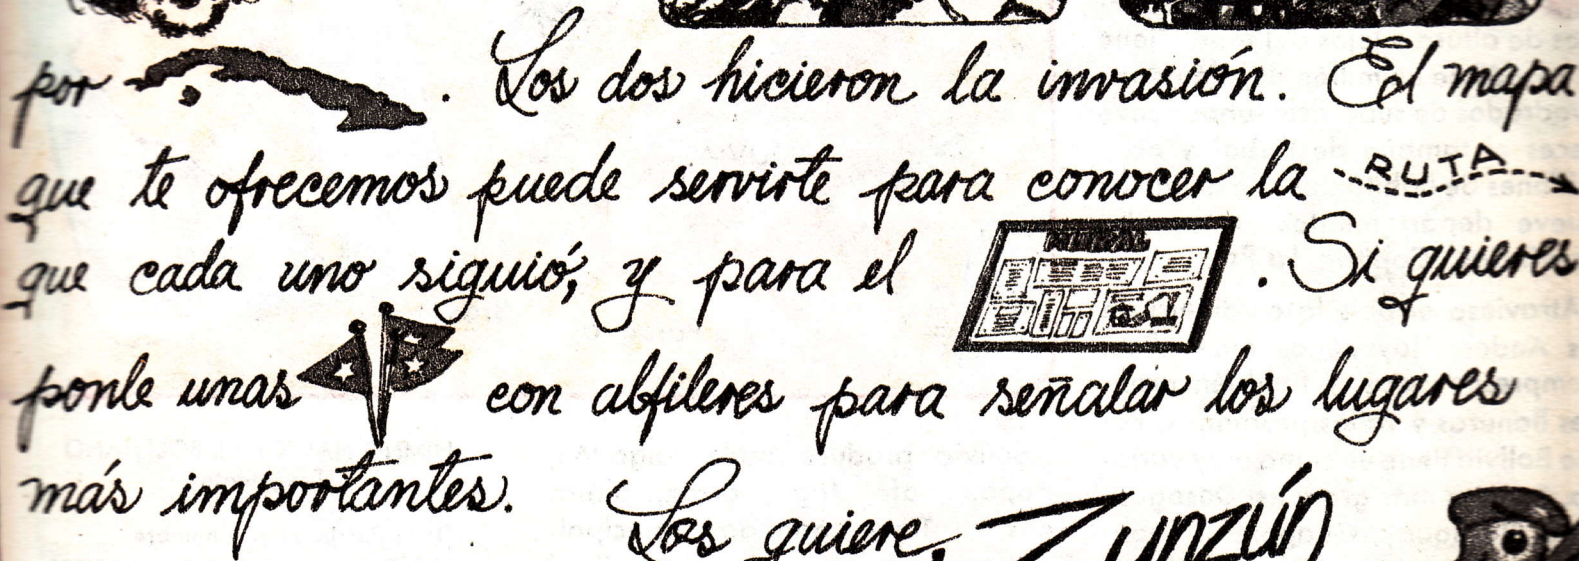 por . Los dos hicieron la invasión. El mapa
que te ofrecemos puede servirte para conocer la RUTA
que cada uno siguió, y para el MURAL . Si quieres
ponle unas con alfileres para señalar los lugares
más importantes.
Los quiere, Zunzún